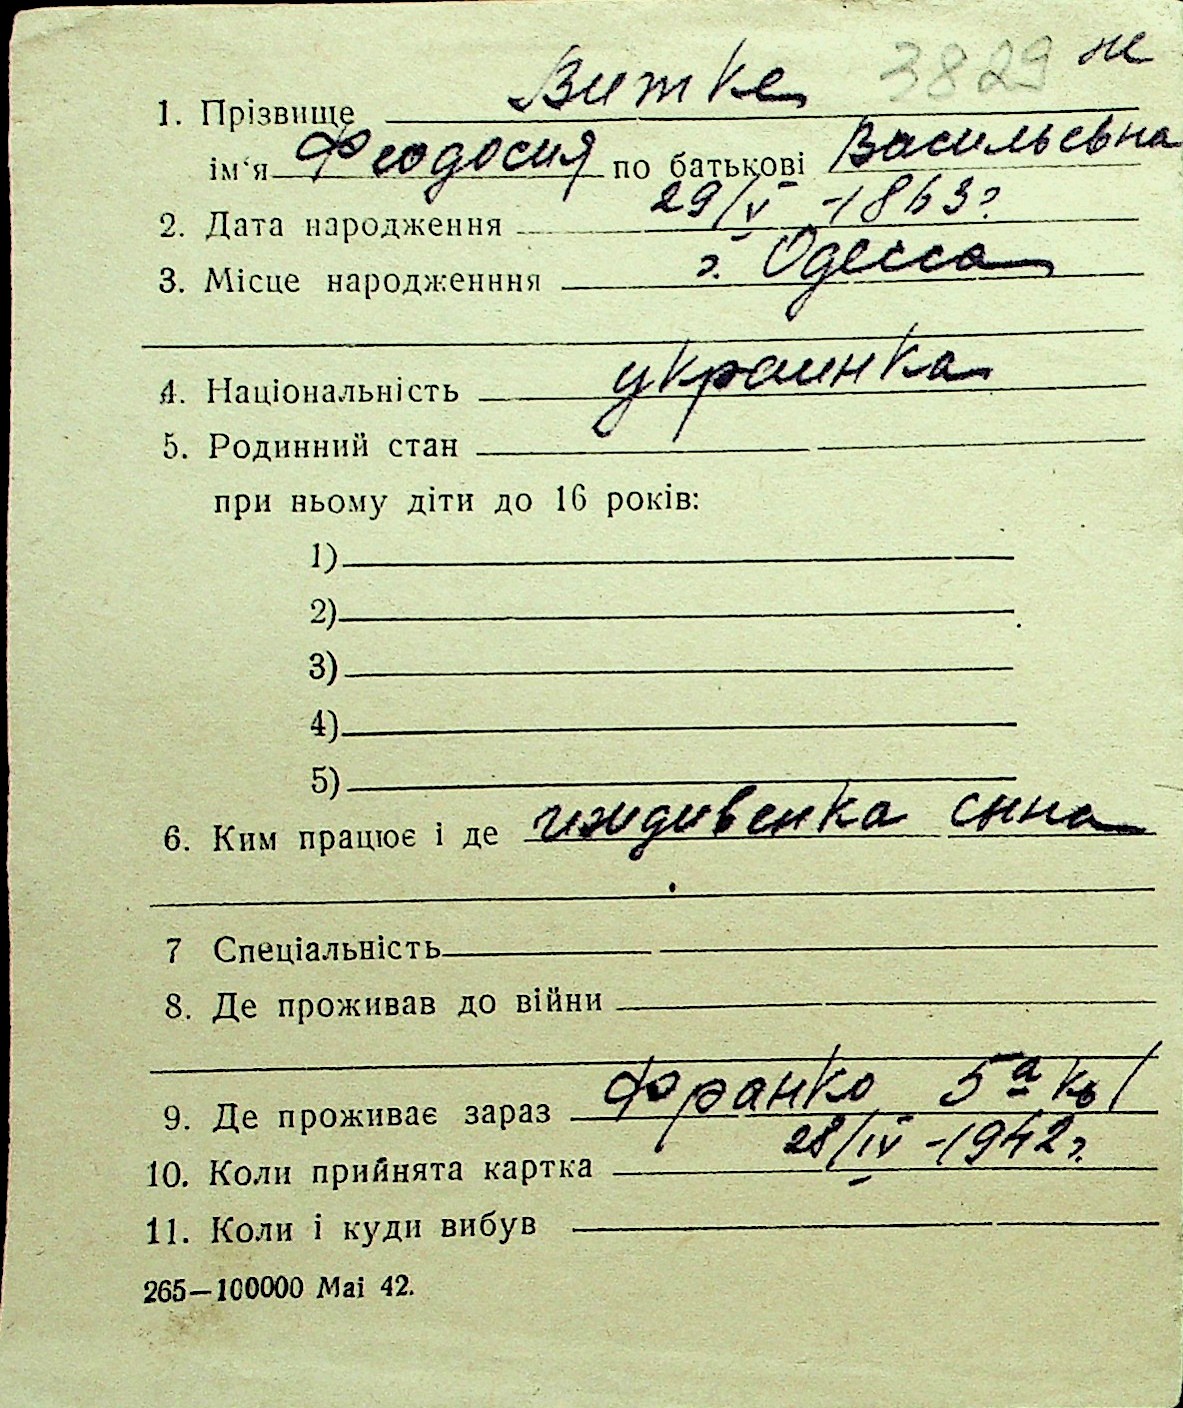 3829 не
1. Прізвище Витке
ім‘я Феодосия по батькові Васильевна
2. Дата народження 29/V - 1863 г.
3. Місце народженння г. Одесса
4. Національність украинка
5. Родинний стан
при ньому діти до 16 років:
1)
2)
3)
4)
5)
6. Ким працює і де иждивенка сына
7 Спеціальність
8. Де проживав до війни
9. Де проживає зараз Франко 5а кв 1
10. Коли прийнята картка 28/IV - 1942 г.
11. Коли і куди вибув
265—100000 Mai 42.